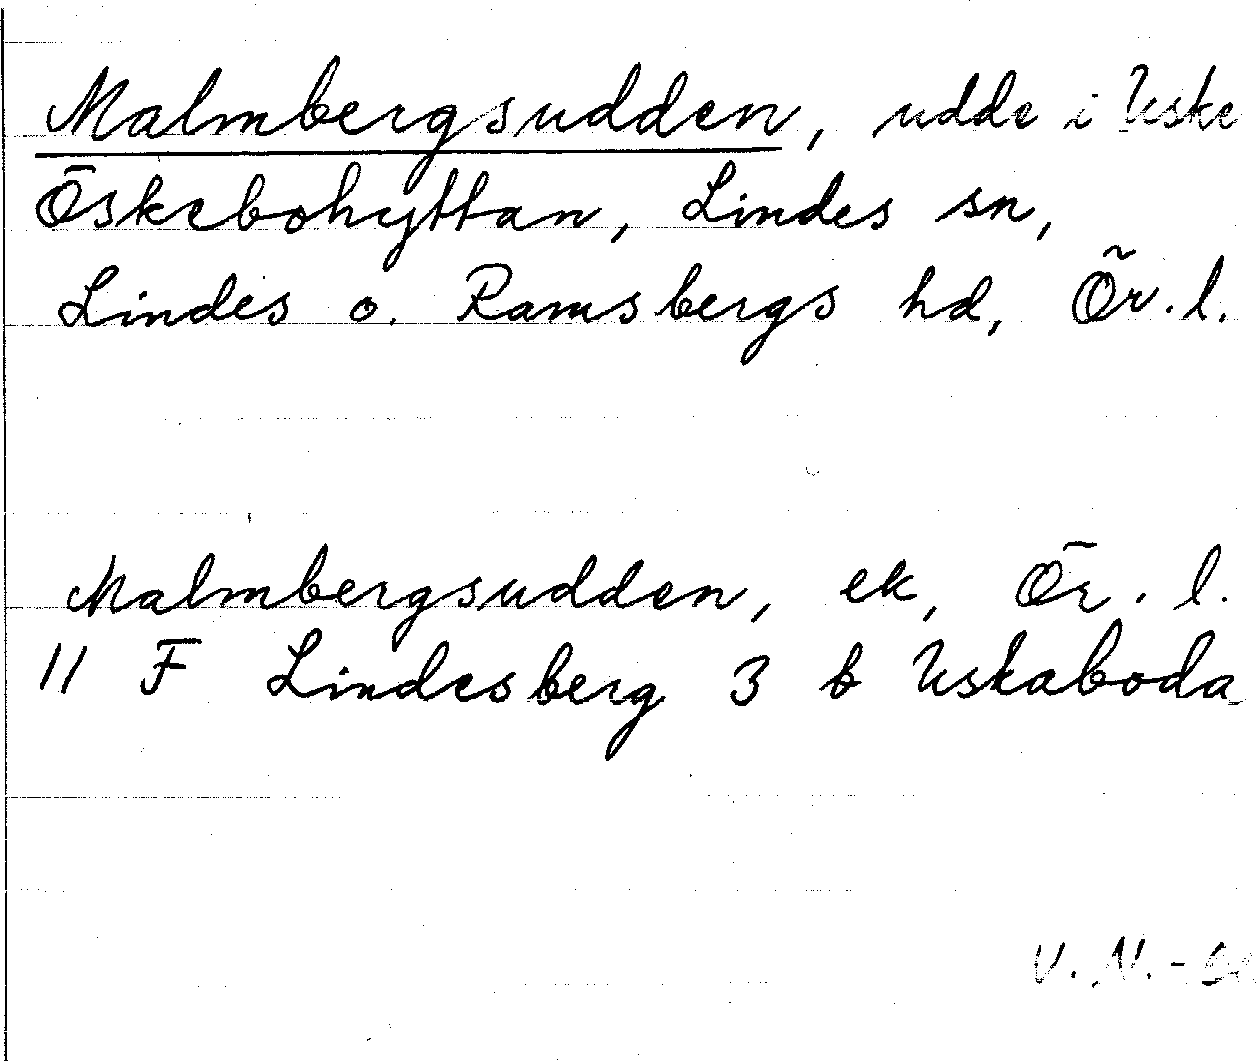 Malmbergsudden, udde i Uske
Öskebohyttan, Lindes sn,
Lindes o. Ramsbergs hd, Ör. l.
Malmbergsudden, ek, Ör. l.
11 F Lindesberg 3 b Uskaboda
V. N. -